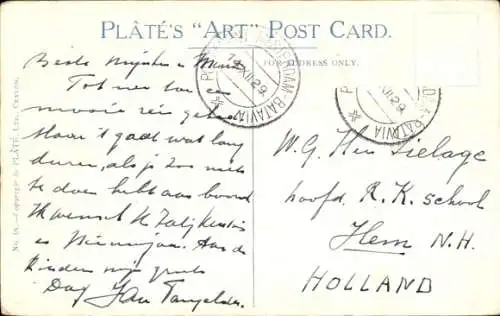 PLÂTÉ'S "ART" POST CARD.
FOR ADDRESS ONLY.
AMSTERDAM-BATAVIA
XII 29
DAM-BATAVIA
XII 29
No. 18.—Copyright by PLÂTÉ, Ltd., Ceylon.
Beste Mijnheer
Tot nu toe een
mooie reis gehad
Maar 't gaat wat lang
duren, als je zoo niets
te doen hebt aan boord
Ik wensch U Zalig Kerstmis
en Nieuwjaar. Aan de
kinderen mijn groet
Dag Jan
W. G. Hen Sielage
hoofd R. K. school
Hem N. H.
HOLLAND